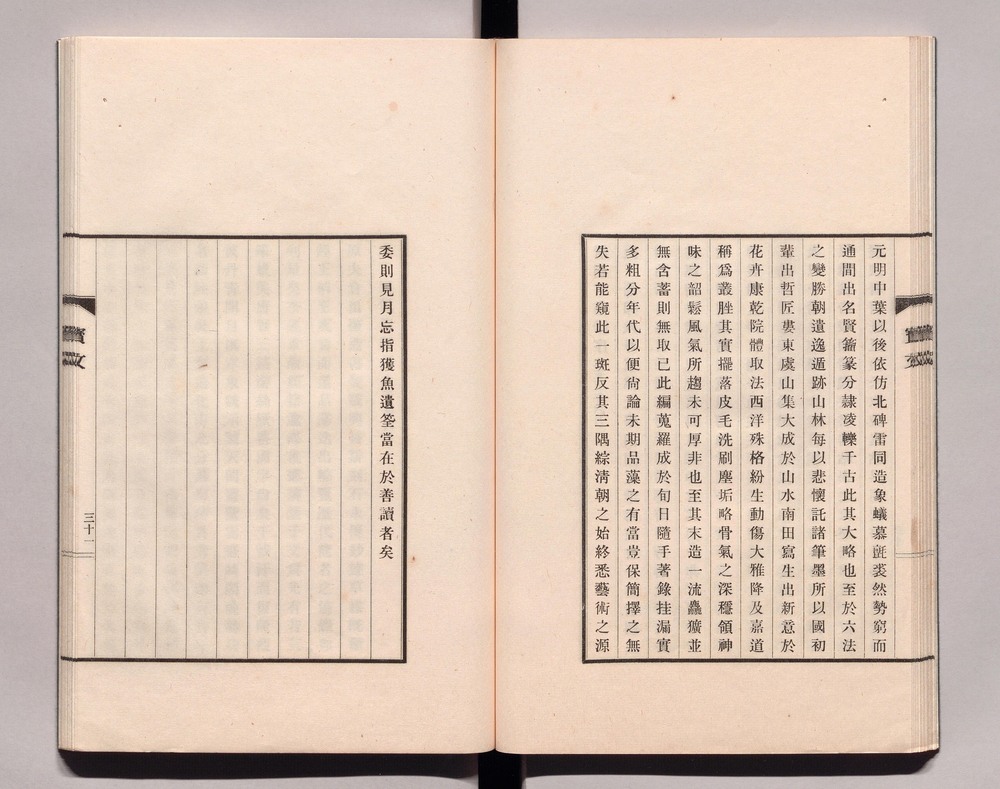 元明中葉以後依仿北碑雷同造象蟻慕氈裘然勢窮而
通間出名賢籀篆分隸凌轢千古此其大略也至於六法
之變勝朝遺逸遁跡山林每以悲懷託諸筆墨所以國初
輩出哲匠婁東虞山集大成於山水南田寫生出新意於
花卉康乾院體取法西洋殊格紛生動傷大雅降及嘉道
稱爲叢脞其實擺落皮毛洗刷塵垢略骨氣之深穩領神
味之韶鬆風氣所趨未可厚非也至其末造一流麤獷並
無含蓄則無取已此編蒐羅成於旬日隨手著錄挂漏實
多粗分年代以便尙論未期品藻之有當豈保簡擇之無
失若能窺此一斑反其三隅綜淸朝之始終悉藝術之源
委則見月忘指獲魚遺筌當在於善讀者矣
三十一